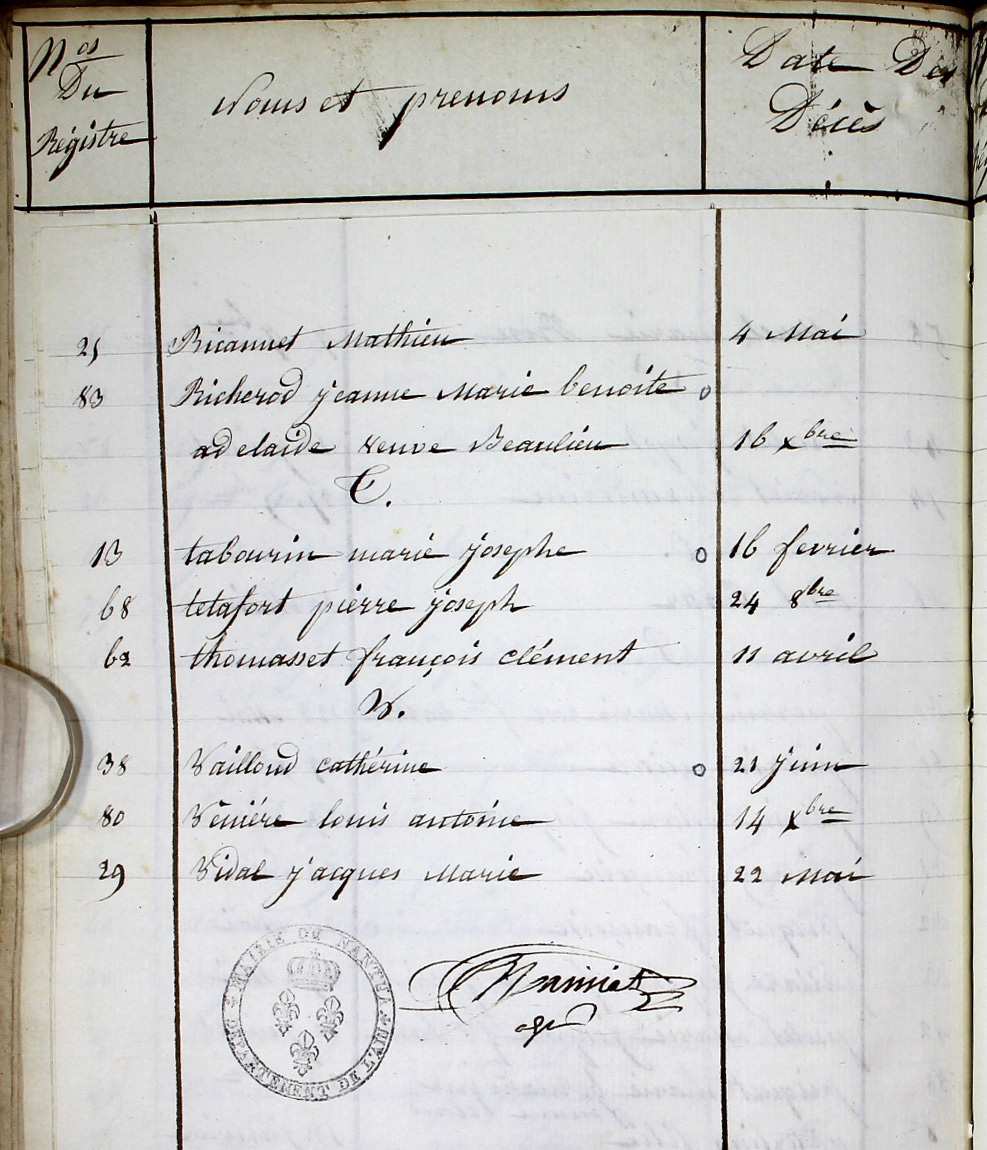 Nos Du Régistre
Noms et prenoms
Date Des Décès
21 Ricannet Mathieu 4 Mai
83 Richerod jeanne Marie benoite
adelaide veuve Beaulieu 16 xbre
T.
13 tabourin marie josephe 16 fevrier
68 tetafort pierre joseph 24 8bre
62 thomasset françois clément 11 avril
V.
38 Vailloud cathérine 21 juin
80 Vêniére louis antoine 14 xbre
29 Vidal jacques Marie 22 Mai
MAIRIE DE NANTUA DÉPARTEMENT DE L'AIN